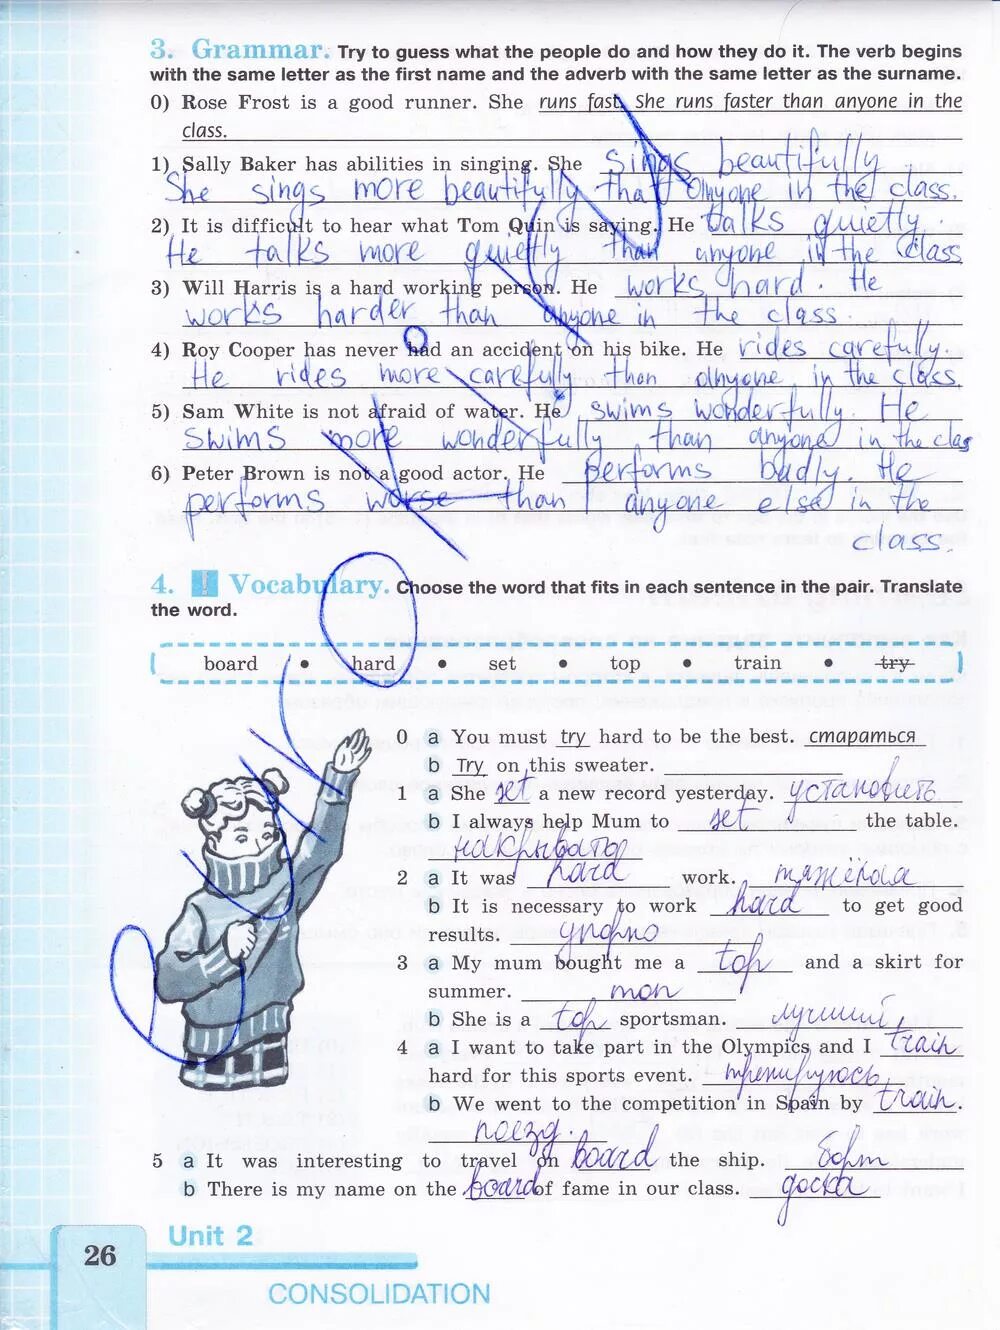 3. Grammar. Try to guess what the people do and how they do it. The verb begins
with the same letter as the first name and the adverb with the same letter as the surname.
0) Rose Frost is a good runner. She runs fast. She runs faster than anyone in the
class.
1) Sally Baker has abilities in singing. She sings beautifully
She sings more beautifully that anyone in the class.
2) It is difficult to hear what Tom Quin is saying. He talks quietly.
He talks more quietly than anyone in the class
3) Will Harris is a hard working person. He works hard. He
works harder than anyone in the class.
4) Roy Cooper has never had an accident on his bike. He rides carefully.
He rides more carefully than anyone in the class.
5) Sam White is not afraid of water. He swims wonderfully. He
swims more wonderfully than anyone in the clas
6) Peter Brown is not a good actor. He performs badly. He
performs worse than anyone else in the
class.
4. ! Vocabulary. Choose the word that fits in each sentence in the pair. Translate
the word.
board • hard • set • top • train • try
0 a You must try hard to be the best. стараться
b Try on this sweater.
1 a She set a new record yesterday. установить
b I always help Mum to set the table.
накрывать
2 a It was hard work. тяжёлая
b It is necessary to work hard to get good
results. упорно
3 a My mum bought me a top and a skirt for
summer. топ
b She is a top sportsman. лучший
4 a I want to take part in the Olympics and I train
hard for this sports event. тренируюсь
b We went to the competition in Spain by train.
поезд.
5 a It was interesting to travel on board the ship. борт
b There is my name on the board of fame in our class. доска
Unit 2
26
CONSOLIDATION